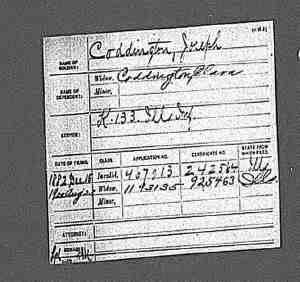 NAME OF SOLDIER: Coddington, Joseph
NAME OF DEPENDENT: Widow, Coddington, Clara
Minor,
SERVICE: K. 133. Ills Inf.
DATE OF FILING. CLASS. APPLICATION NO. CERTIFICATE NO. STATE FROM WHICH FILED.
1882 Dec 18 Invalid, 467013 242564 Ills
Widow, 925463 Ills
Minor,
ATTORNEY:
REMARKS: